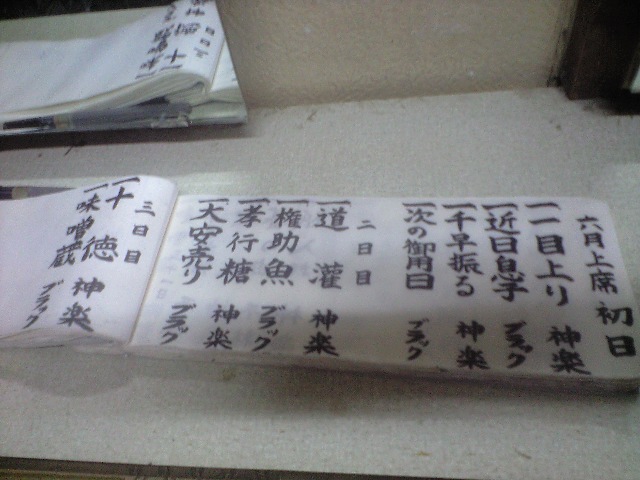 六月上席 初日
一 一目上り 神楽
一 近日息子 ブラック
一 千早振る 神楽
一 次の御用日 ブラック
二日目
一 道灌 神楽
一 権助魚 ブラック
一 孝行糖 神楽
一 大安売り ブラック
三日目
一 十徳 神楽
一 味噌蔵 ブラック